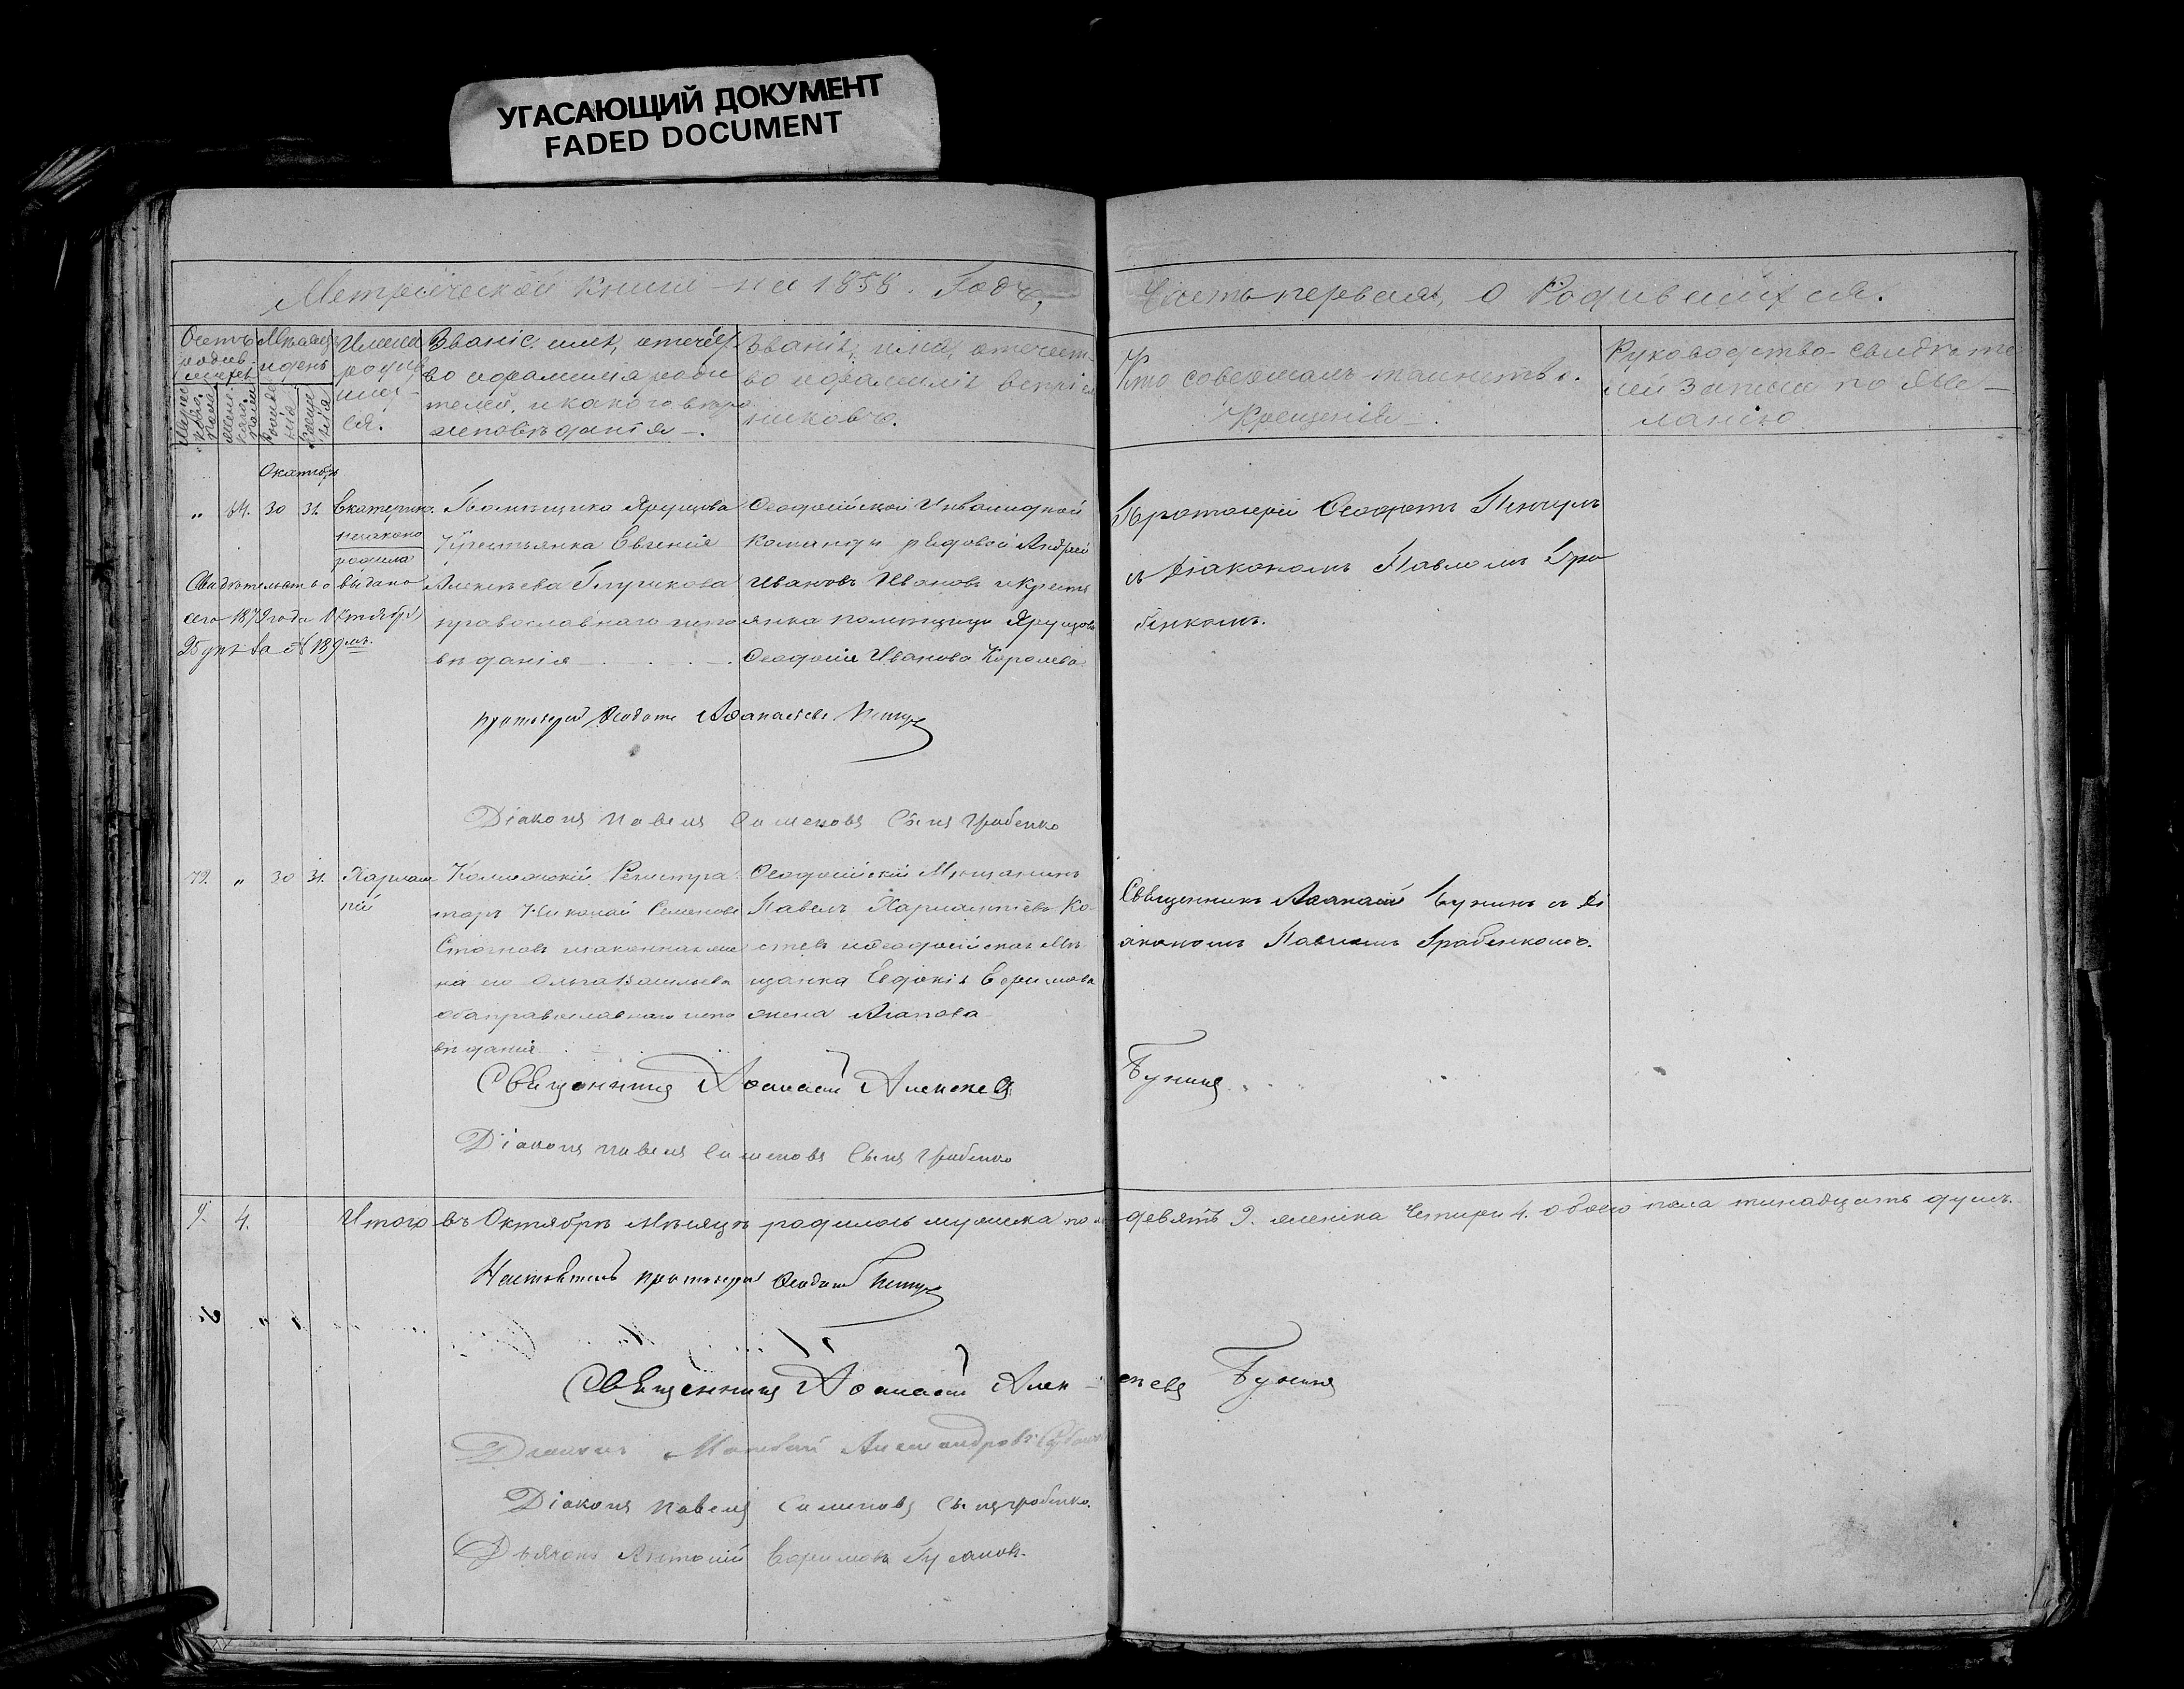 УГАСАЮЩИЙ ДОКУМЕНТ
FADED DOCUMENT
Метрической книги на 1858. Годъ,
Часть первая, о Родившихся.
Счетъ
Мѣсяцъ
и день
Имена
родив
ших
ся.
Званіе, имя, отечест
во и фамилія роди
телей, и какого вѣро
исповѣданія
Званіе, имя, отечест
во и фамилія воспріем
никовъ.
Кто совершалъ таинство
Крещенія
Руководство свидѣте
лей записи по же
ланію
Октябрь
„ 64. 30 31. Екатерина
незаконо
родила
Помѣщика
Крестьянка Евгенія
Алексѣева
православнаго испо
вѣданія
Ѳеодосійской Инвалидной
команды рядовой Андрей
Ивановъ Ивановъ и кресть
янка помѣщицы
Ѳеодосія Иванова Королева
Протоіерей Ѳеодотъ
съ Діакономъ Павломъ Гра
бенкомъ.
Свидѣтельство выдано
сего 1879 года Октября
25 дня за № 139мъ.
протоіерей Ѳеодотъ Аѳанасіевъ
Діаконъ Павелъ Симеоновъ Сынъ Грабенко
72. „ 30 31. Харлам
пій
Коллежскій Регистра
торъ Николай Семеновъ
законная же
на его Ольга Васильева
оба православнаго испо
вѣданія
Ѳеодосійскій Мѣщанинъ
Павелъ Харлампіевъ Ко
стевъ и Ѳеодосійская Мѣ
щанка Евдокія Ефимова
жена Агапова
Священникъ Аѳанасій Бунинъ съ Ді
акономъ Павломъ Грабенкомъ.
Священникъ Аѳанасій Алексѣевъ Бунинъ
Діаконъ Павелъ Симеоновъ Сынъ Грабенко
9. 4. Итого въ Октябрѣ Мѣсяцѣ родилось мужеска пола девять 9. женска четыри 4. обоего пола тинадцать душъ.
Настоятель протоіерей Ѳеодотъ
Священникъ Аѳанасій Алексѣевъ Бунинъ
Діаконъ Матвей Александровъ
Діаконъ Павелъ Симеоновъ Сынъ Грабенко.
Дьячокъ Антоній Ефимовъ